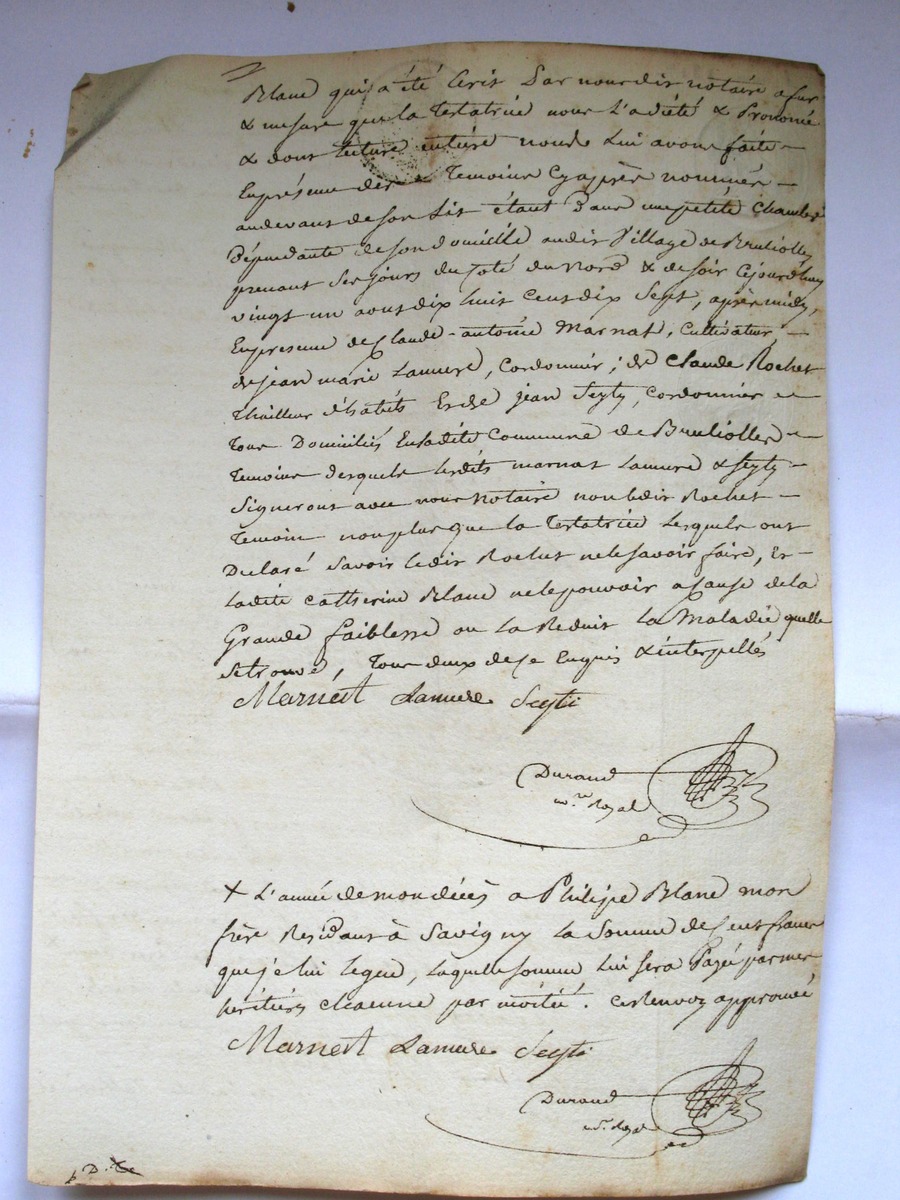 Blanc qui a été Ecrit Par nous dit notaire a fur
& mesure que la Testatrice nous L'a dicté & Prononcé
& dont Lecture entière nous de Lui avons faite
En présence des Temoins Cy après nommés
au devant de son Lit étant Dans une petite Chambre
Dépendante de son domicille audit Village de Brulioles
prenant ses jours du Coté du Nord & de soir Cejourdhuy
vingt un aout dix huit Cent dix Sept, après midy,
En présence de Claude-antoine Marnat, Cultivateur,
de jean marie Lamure, Cordonnier; de Claude Rochet
Thailleur d'habits Et de jean Seyty, Cordonnier
Tous Domiciliés En ladite Commune de Brulioles
Temoins desquels lesdits marnat Lamure & Seyty
Signerons avec nous Notaire non ledit Rochet
Temoin non plus que la Testatrice Lesquels ont
Declaré Savoir ledit Rochet ne le savoir faire, Et
Ladite Catherine Blanc ne le pouvoir a Cause de la
Grande faiblesse ou la Reduit La Maladie quelle
Se trouve, Tous deux de ce Enquis & interpellés
Marnat Lamure Seyti
Durand
n.re Royal
+ L'année de mon décès a Philipe Blanc mon
frère Residant à Savigny La Somme de Cent francs
que je lui Legue, Laquelle somme Lui sera Payé par mes
héritiers chacune par moitié. Ce Renvoy approuvé
Marnat Lamure Seyti
Durand
n.re Royal